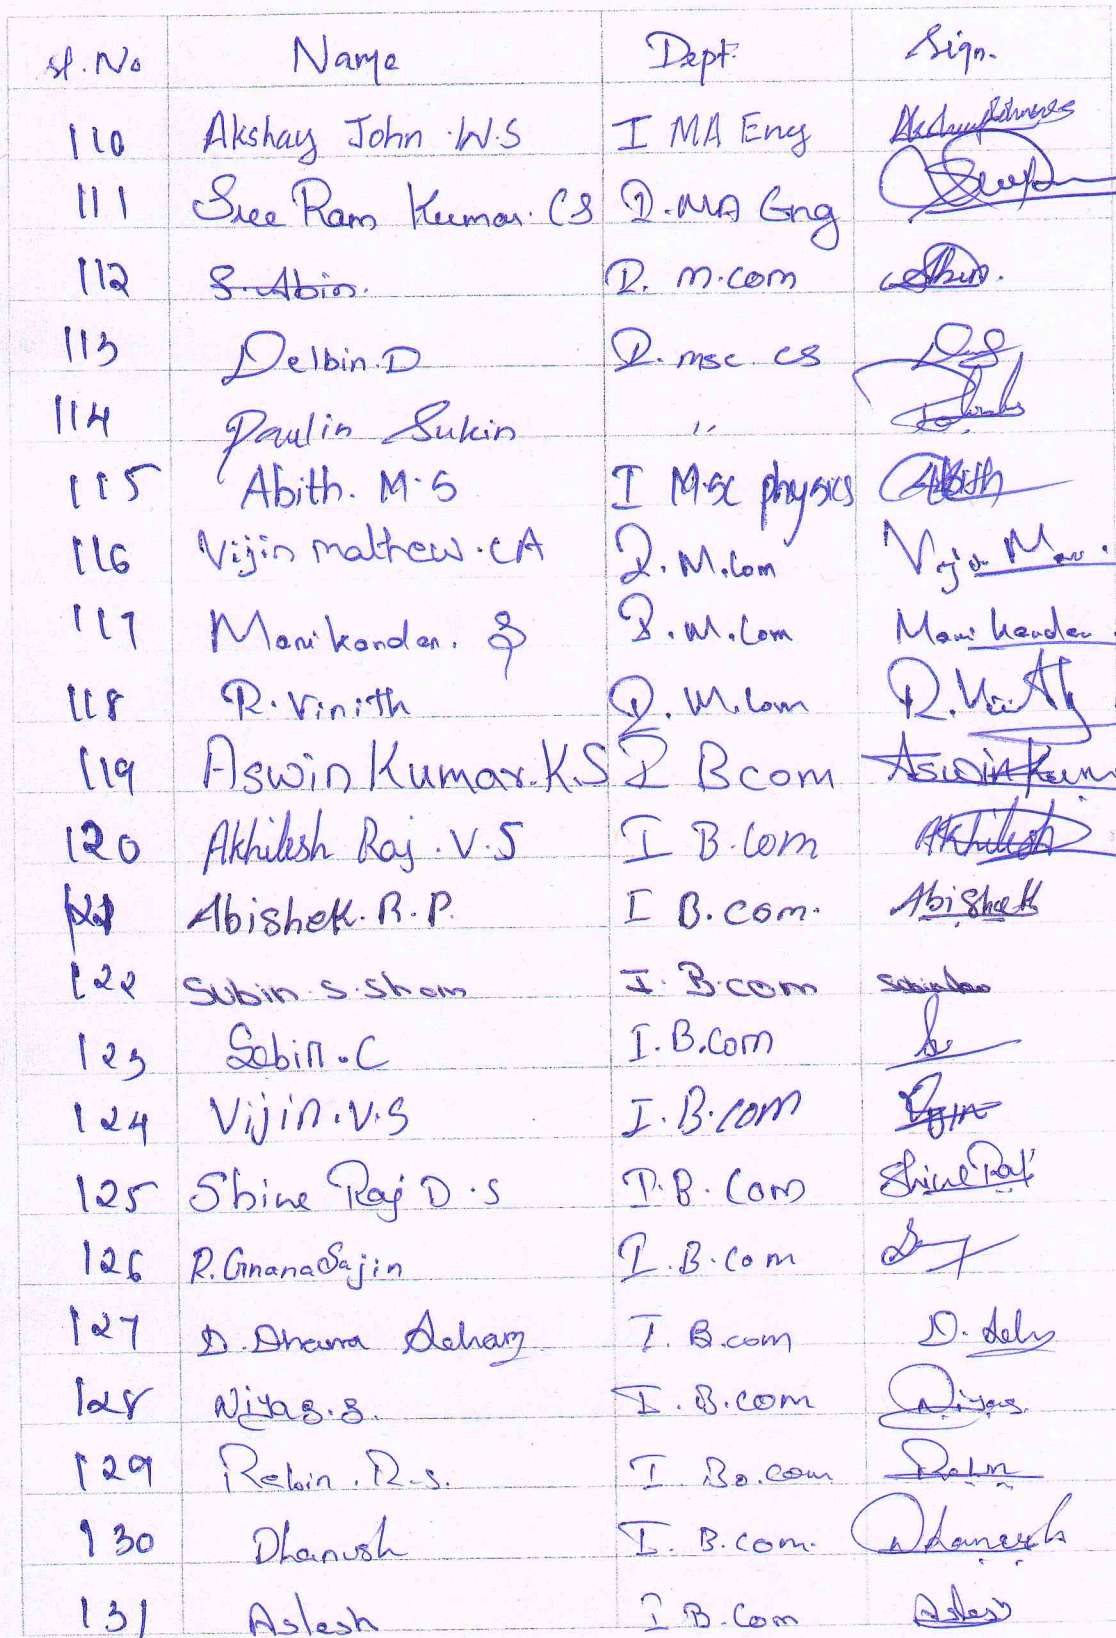 Sl. No Name Dept. Sign.
110 Akshay John .W.S I MA Eng
111 Sree Ram Kumar. CS I. MA Eng
112 S. Abin. I. M.com Abin.
113 Delbin.D I. msc. cs
114 Paulin Sukin "
115 Abith. M.S I M.sc physics Abith
116 Vijin mathew.CA I. M.Com Vijin
117 Manikandan. I. M.Com Manikandan.
118 R. Vinith I. M.Com R.
119 Aswin Kumar.K.S I Bcom Aswin Kum
120 Akhilesh Raj .V.S I B.Com Akhilesh
121 Abishek. R.P. I B.com. Abishek
122 Subin.s.sham I. B.com
123 Sabin.C I.B.Com
124 Vijin.V.S I.B.com Vijin
125 Shine Raj D.S I.B.Com Shine Raj
126 R.GnanaSajin I.B.Com
127 D. I. B.com D.
128 Niyas.s. I. B.com Niyas
129 Rebin.R.s. I Bo.com Rebin
130 Dhanush I. B.com. Dhanush
131 Aslesh I B.Com Aslesh